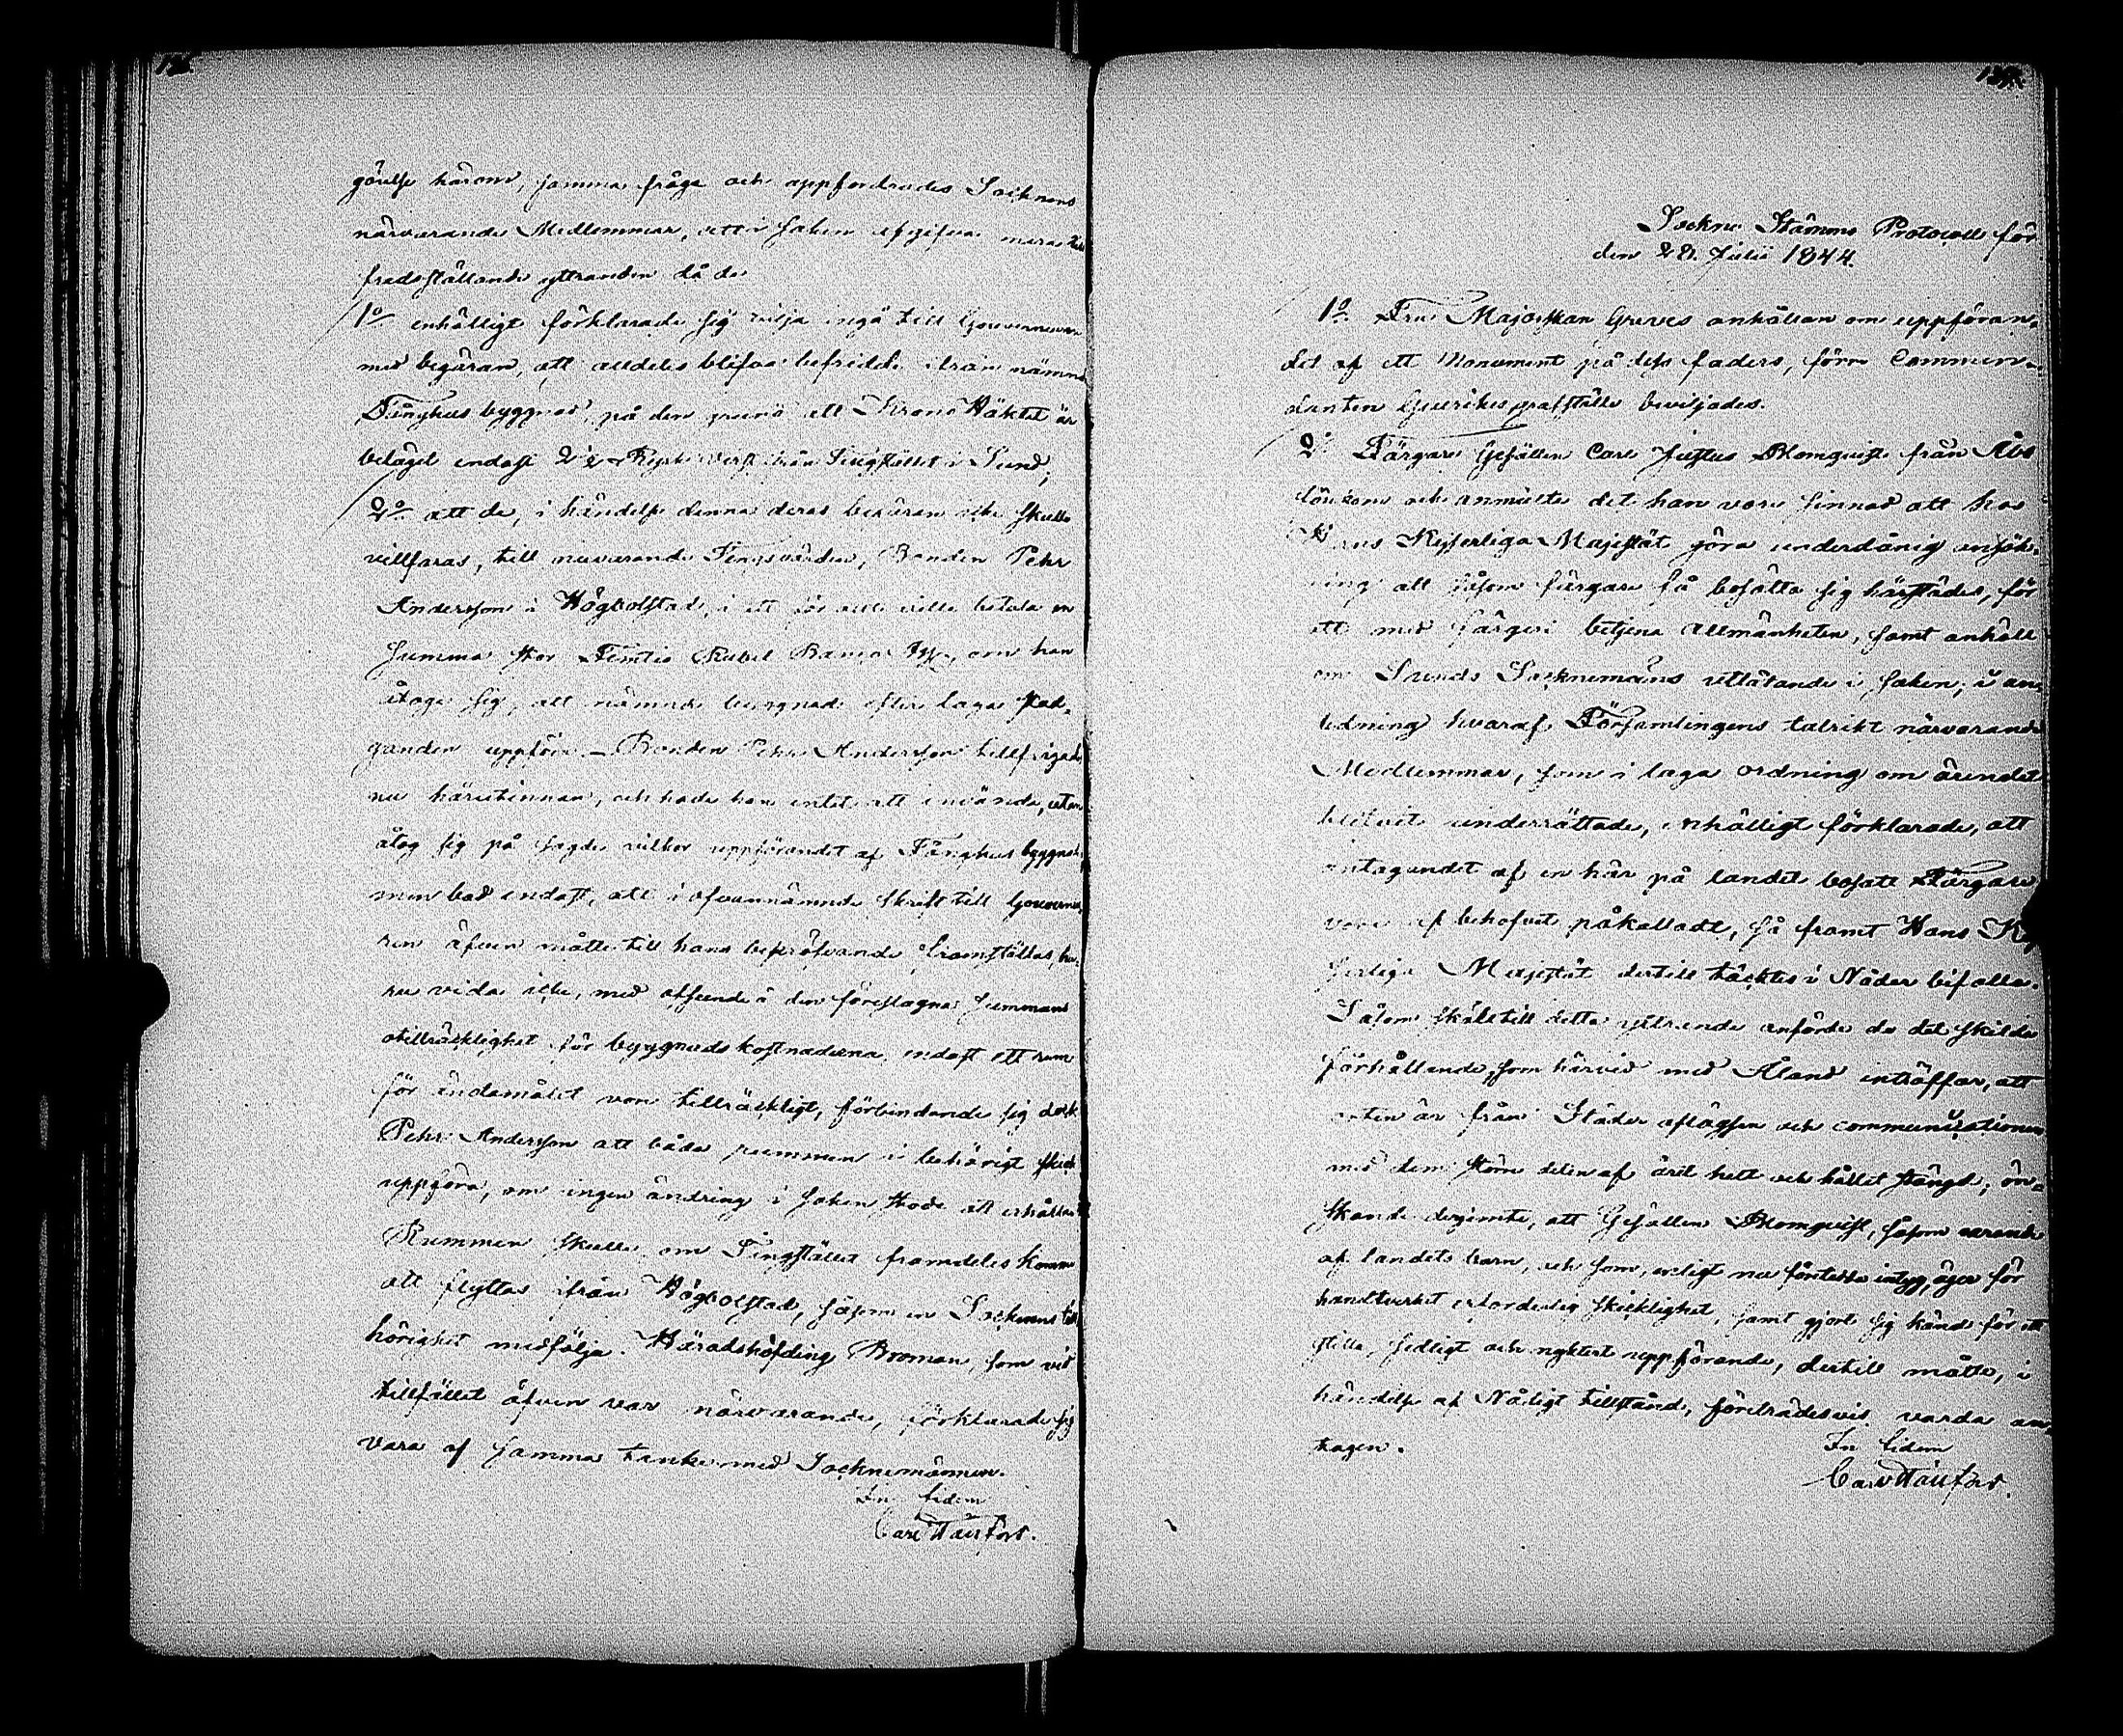 görelse härom, samma fråga och uppfordrades Socknens
närvarande Medlemmar, att i saken afgifva mera till
fredsställande yttranden då de
1o enhälligt förklarade sig vilja ingå till Gouverneuren
med begäran, att alldeles blifva befridde ifrån nämnde
Fånghus byggnad, på den grund att Krono Häktet är
belägit endast 2 1/2 Ryska Verst ifrån Tingstället i Sund;
2o att de, i händelse denna deras begäran icke skulle
villfaras, till nuvarande Tingsvärden, Bonden Pehr
Andersson i Högbolstad, i ett för allt ville betala en
summa stor Femtio Rubel Banco Ass., om han
åtoge sig, att nämnde byggnad efter laga stad-
ganden uppföra. – Bonden Pehr Andersson tillfrågades
nu härutinnan, och hade han intet att invända, utan
åtog sig på sagde vilkor uppförandet af Fånghus byggnaden,
men bad endast, att i ofvannämnde skrift till Gouverneu-
ren äfven måtte till hans bepröfvande framställas, hu-
ru vida icke, med afseende å den föreslagna summans
otillräcklighet för byggnads kostnaderna, endast ett rum
för ändamålet vore tillräckligt, förbindande sig dock
Pehr Andersson att båda rummen i behörigt skick
uppföra, om ingen ändring i saken stode att erhålla.
Rummen skulle, om Tingstället framdeles komme
att flyttas ifrån Högbolstad, såsom en Socknens till
hörighet medfölja. Häradshöfding Broman, som vid
tillfället äfven var närvarande, förklarade sig
vara af samma tanke med Socknemännen.
In fidem
Carl
Sockne Stämmo Protocoll för
den 28. Julii 1844.
1o Fru Majorskan Greves anhållan om uppföran-
det af ett Monument på dess faders, förre Commen-
danten grafställe beviljades.
2o Färgare Gesällen Carl Justus Blomqvist från Åbo
tillkom och anmälte det han vore sinnad att hos
Hans Kejserliga Majestät göra underdånig ansök-
ning att såsom färgare få bosätta sig härstädes, för
att med färgeri betjena Allmänheten, samt anhöll
om Sunds Socknemäns utlåtande i saken; i an-
ledning hvaraf Församlingens talrikt närvarande
Medlemmar, som i laga ordning om ärendet
blifvit underrättade, enhälligt förklarade, att
antagandet af en här på landet bosatt Färgare
vore af behofvet påkalladt, så framt Hans Kej
serliga Majestät dertill täcktes i Nåder bifalla.
Såsom skäl till detta yttrande anförde de det skilda
förhållande, som härvid med Åland inträffar, att
orten är från Städer aflägsen och communicationen
med dem större delen af året helt och hållet stängd; ön-
skande derjemte, att Gesällen Blomqvist, såsom varande
af landets barn, och som, enligt nu företedde intyg, äger för
handtverket erforderlig skicklighet, samt gjort sig känd för ett
stilla, sedligt och nyktert uppförande, dertill måtte, i
händelse af Nådigt tillstånd, företrädesvis varda an-
tagen.
In fidem
Carl